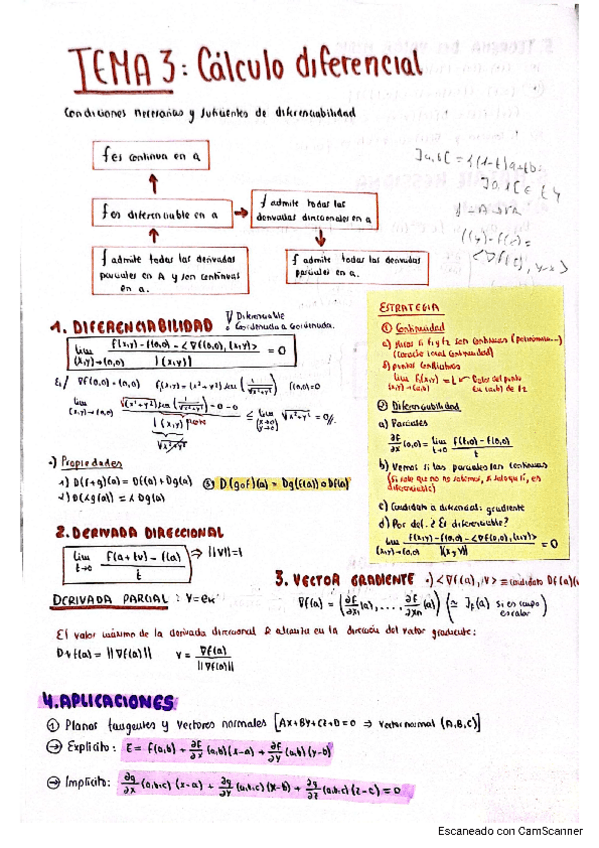 TEMA 3: Cálculo diferencial
Condiciones necesarias y suficientes de diferenciabilidad
f es continua en a
f es diferenciable en a
f admite todas las derivadas direccionales en a
f admite todas las derivadas parciales en A y son continuas en a.
f admite todas las derivadas parciales en a.
1. DIFERENCIABILIDAD
∇ Diferenciable
Coordenada a coordenada.
lim (x,y)→(0,0) f(x,y)-f(0,0)-<∇f(0,0),(x,y)> / ‖(x,y)‖ = 0
Ej/ ∇f(0,0)=(0,0) f(x,y)=(x²+y²) sen(1/√x²+y²) f(0,0)=0
·) Propiedades
1) D(f+g)(a) = Df(a)+Dg(a)
③ D(g∘f)(a) = Dg(f(a))∘Df(a)
2. DERIVADA DIRECCIONAL
lim t→0 f(a+tv)-f(a) / t ⇒ ‖v‖=1
DERIVADA PARCIAL: v=eₖ
3. VECTOR GRADIENTE
∇f(a) = (∂f/∂x₁(a), ..., ∂f/∂xₙ(a)) (≃ Jf(a) si es campo escalar)
El valor máximo de la derivada direccional se alcanza en la dirección del vector gradiente:
Dvf(a) = ‖∇f(a)‖ v = ∇f(a) / ‖∇f(a)‖
ESTRATEGIA
① Continuidad
b) puntos conflictivos
② Diferenciabilidad
a) Parciales
∂f/∂x (0,0) = lim t→0 f(t,0)-f(0,0) / t
b) Vemos si las parciales son continuas
c) Candidato a diferencial: gradiente
d) Por def. ¿Es diferenciable?
lim (x,y)→(0,0) f(x,y)-f(0,0)-<∇f(0,0),(x,y)> / ‖(x,y)‖ = 0
4. APLICACIONES
① Planos tangentes y vectores normales [Ax+By+Cz+D=0 ⇒ vector normal (A,B,C)]
→ Explícito: z = f(a,b) + ∂f/∂x (a,b)(x-a) + ∂f/∂y (a,b)(y-b)
→ Implícito: ∂g/∂x (a,b,c)(x-a) + ∂g/∂y (a,b,c)(x-b) + ∂g/∂z (a,b,c)(z-c) = 0
Escaneado con CamScanner